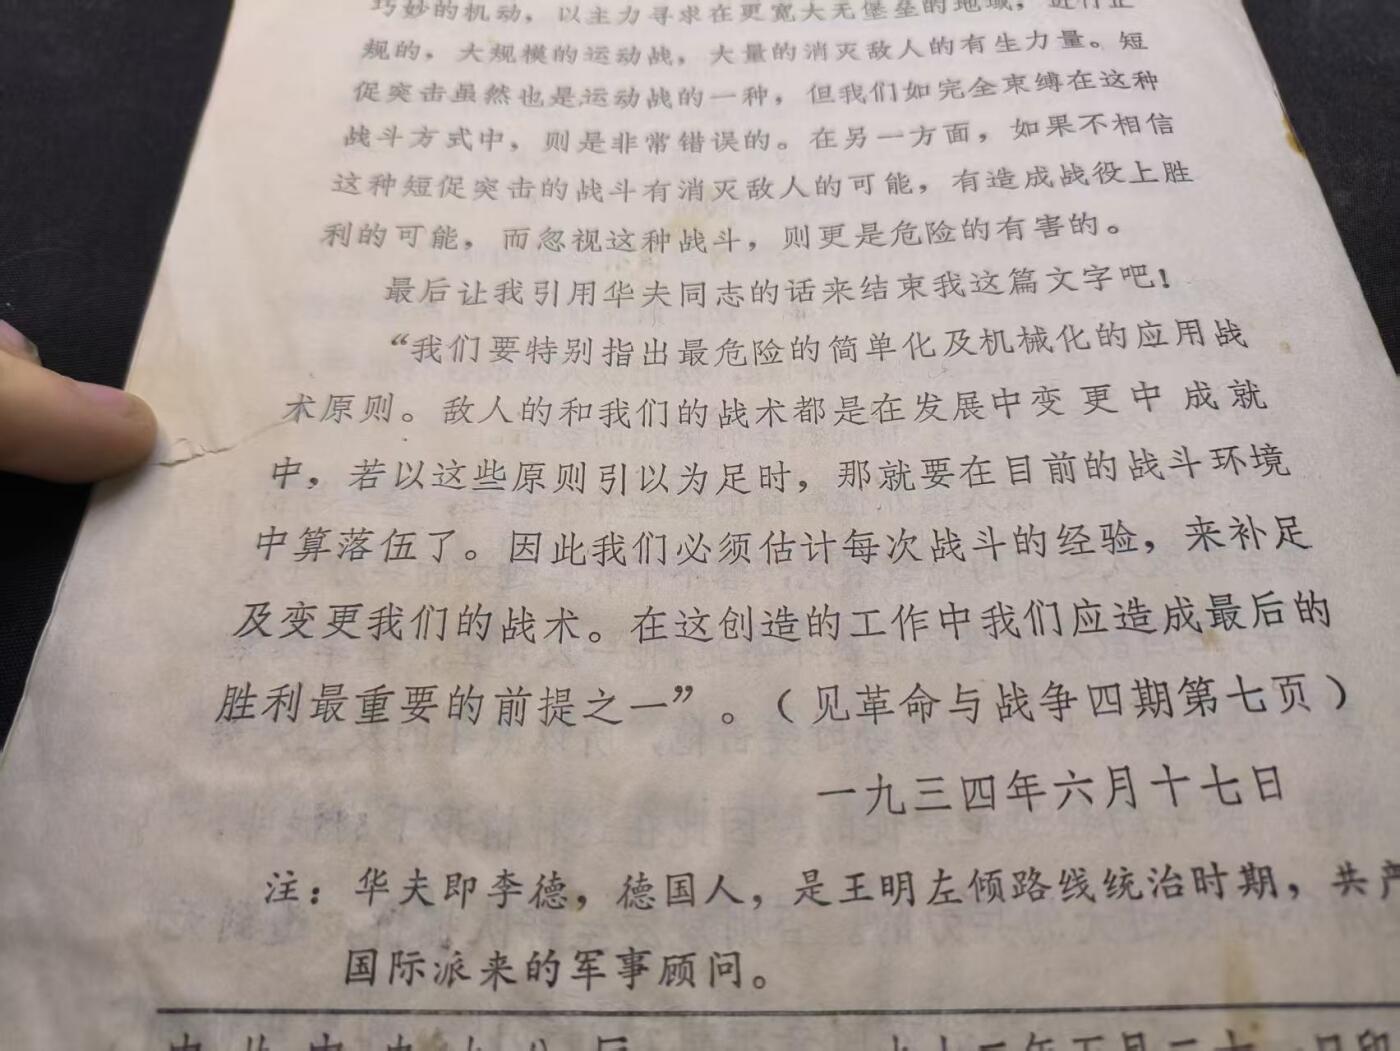 巧妙的机动，以主力寻求在更宽大无堡垒的地域，进行正
规的，大规模的运动战，大量的消灭敌人的有生力量。短
促突击虽然也是运动战的一种，但我们如完全束缚在这种
战斗方式中，则是非常错误的。在另一方面，如果不相信
这种短促突击的战斗有消灭敌人的可能，有造成战役上胜
利的可能，而忽视这种战斗，则更是危险的有害的。
最后让我引用华夫同志的话来结束我这篇文字吧！
“我们要特别指出最危险的简单化及机械化的应用战
术原则。敌人的和我们的战术都是在发展中变更中成就
中，若以这些原则引以为足时，那就要在目前的战斗环境
中算落伍了。因此我们必须估计每次战斗的经验，来补足
及变更我们的战术。在这创造的工作中我们应造成最后的
胜利最重要的前提之一”。（见革命与战争四期第七页）
一九三四年六月十七日
注：华夫即李德，德国人，是王明左倾路线统治时期，共产
国际派来的军事顾问。